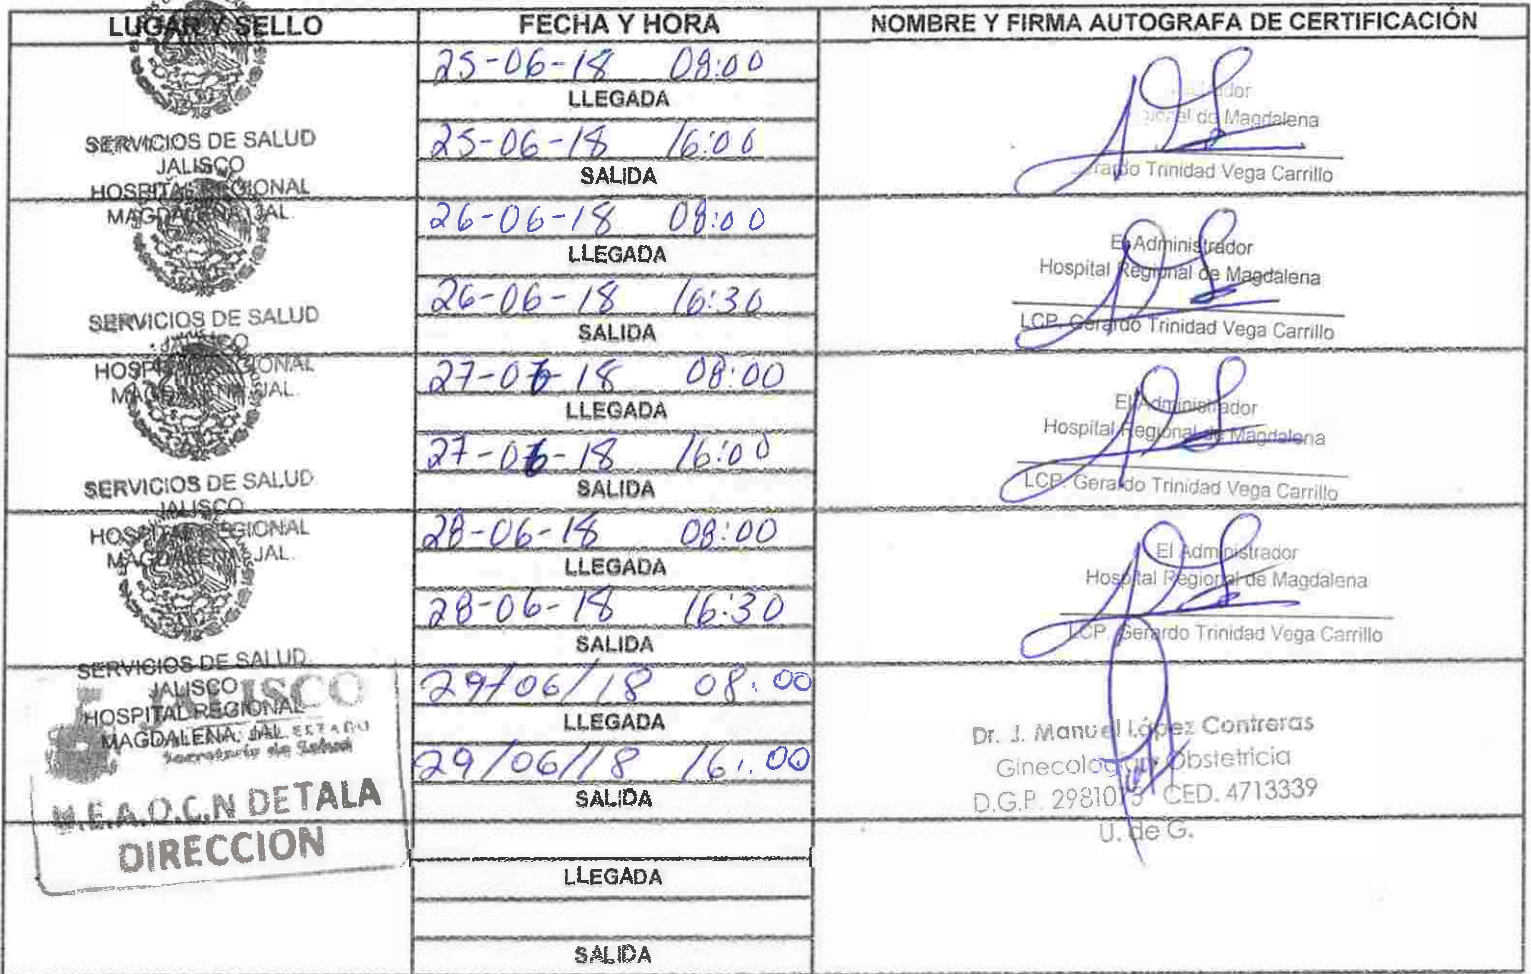 LUGAR Y SELLO FECHA Y HORA NOMBRE Y FIRMA AUTOGRAFA DE CERTIFICACIÓN
SERVICIOS DE SALUD
JALISCO
HOSPITAL REGIONAL
MAGDALENA, JAL.
25-06-18 08:00
LLEGADA
25-06-18 16:00
SALIDA
de Magdalena
Trinidad Vega Carrillo
SERVICIOS DE SALUD
JALISCO
HOSPITAL REGIONAL
MAGDALENA, JAL.
26-06-18 08:00
LLEGADA
26-06-18 16:30
SALIDA
El Administrador
Hospital Regional de Magdalena
LCP. Gerardo Trinidad Vega Carrillo
SERVICIOS DE SALUD
JALISCO
HOSPITAL REGIONAL
MAGDALENA, JAL.
27-06-18 08:00
LLEGADA
27-06-18 16:00
SALIDA
El Administrador
Hospital Regional de Magdalena
LCP. Gerardo Trinidad Vega Carrillo
SERVICIOS DE SALUD
JALISCO
HOSPITAL REGIONAL
MAGDALENA, JAL.
28-06-18 08:00
LLEGADA
28-06-18 16:30
SALIDA
El Administrador
Hospital Regional de Magdalena
LCP. Gerardo Trinidad Vega Carrillo
JALISCO
Secretaría de Salud
DE TALA
DIRECCION
29/06/18 08:00
LLEGADA
29/06/18 16:00
SALIDA
Dr. J. Manuel López Contreras
Ginecología y Obstetricia
D.G.P. CED. 4713339
U. de G.
LLEGADA
SALIDA